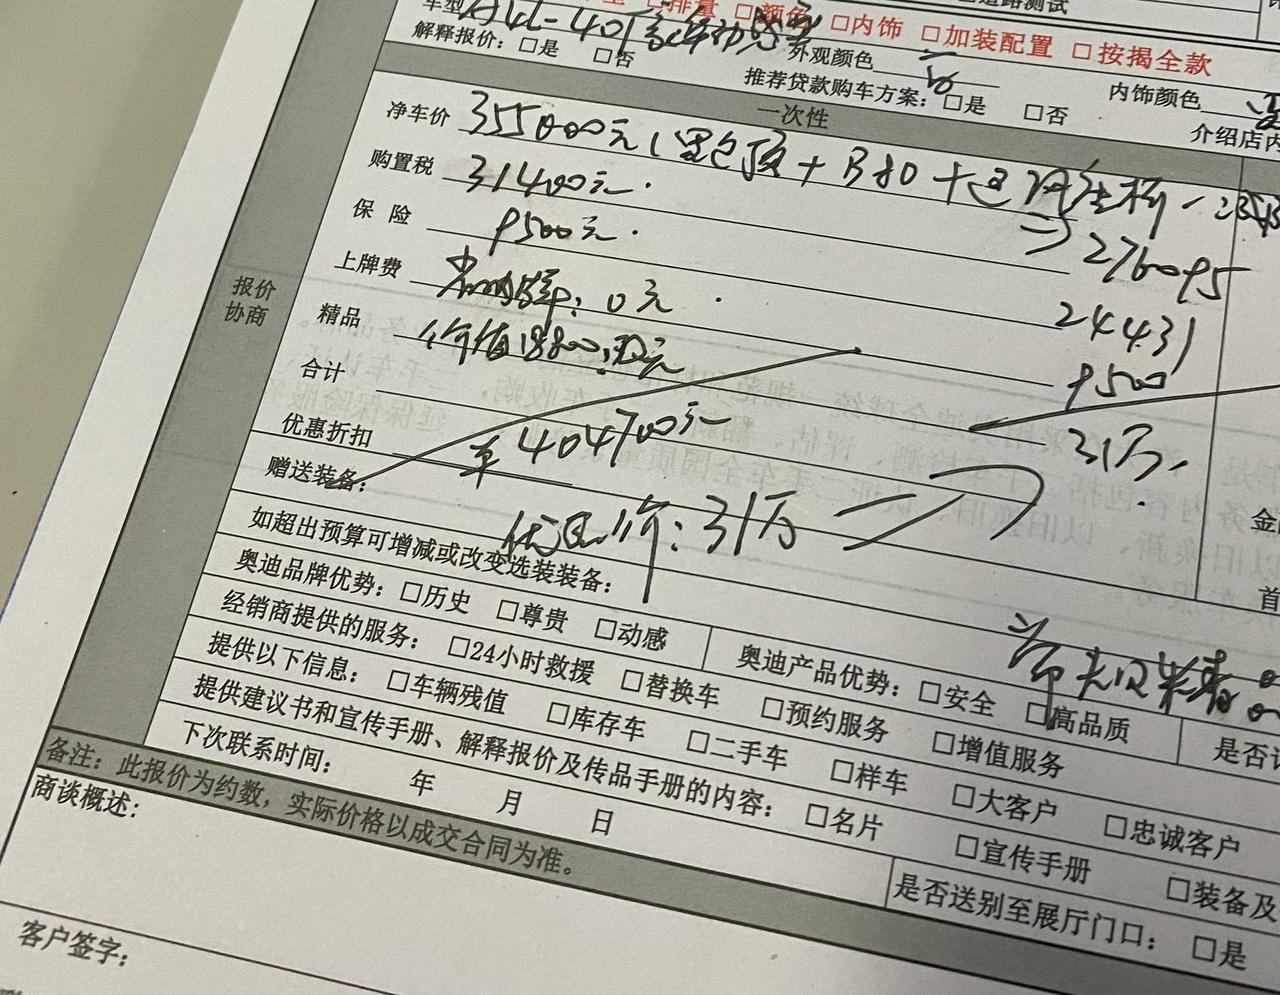 道路测试
车型 A4L-40 排量 □颜色 □内饰 □加装配置 □按揭全款
解释报价：□是 □否 外观颜色 白 内饰颜色
推荐贷款购车方案：□是 □否 介绍店内
一次性
净车价 355000元（黑色顶+B&O+
⇒276095
购置税 31400元. 24431
保险 9500元. 9500
上牌费 0元. 31万.
精品 价值18800.
合计 404700元
优惠折扣
赠送装备：
优惠价：31万
金
如超出预算可增减或改变选装装备：
首
奥迪品牌优势：□历史 □尊贵 □动感 奥迪产品优势：□安全 □高品质
经销商提供的服务：□24小时救援 □替换车 □预约服务 □增值服务 是否
提供以下信息：□车辆残值 □库存车 □二手车 □样车 □大客户 □忠诚客户
提供建议书和宣传手册、解释报价及传品手册的内容：□名片 □宣传手册 □装备及
下次联系时间： 年 月 日 是否送别至展厅门口：□是
备注：此报价为约数，实际价格以成交合同为准。
商谈概述：
客户签字：
报价
协商